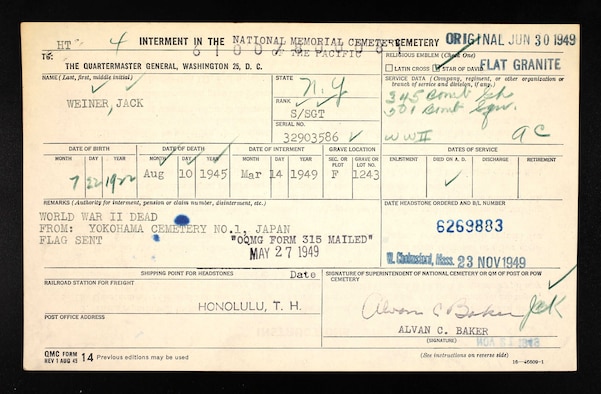 HT 4 INTERMENT IN THE NATIONAL MEMORIAL CEMETERY CEMETERY ORIGINAL JUN 30 1949
OF THE PACIFIC
TO: RELIGIOUS EMBLEM (Check One)
THE QUARTERMASTER GENERAL, WASHINGTON 25, D. C. LATIN CROSS STAR OF DAVID FLAT GRANITE
NAME (Last, first, middle initial) STATE SERVICE DATA (Company, regiment, or other organization or branch of service and division, if any)
N.Y
WEINER, JACK RANK
S/SGT
SERIAL NO.
32903586 WWII AC
DATE OF BIRTH DATE OF DEATH DATE OF INTERMENT GRAVE LOCATION DATES OF SERVICE
MONTH DAY YEAR MONTH DAY YEAR MONTH DAY YEAR SEC. OR PLOT GRAVE OR LOT NO. ENLISTMENT DIED ON A. D. DISCHARGE RETIREMENT
7 22 1922 Aug 10 1945 Mar 14 1949 F 1243
REMARKS (Authority for interment, pension or claim number, disinterment, etc.) DATE HEADSTONE ORDERED AND B/L NUMBER
WORLD WAR II DEAD
FROM: YOKOHAMA CEMETERY NO.1, JAPAN 6269883
FLAG SENT "OQMG FORM 315 MAILED"
MAY 27 1949 W. Chelmsford, Mass. 23 NOV 1949
SHIPPING POINT FOR HEADSTONES Date SIGNATURE OF SUPERINTENDENT OF NATIONAL CEMETERY OR QM OF POST OR POW CEMETERY
RAILROAD STATION FOR FREIGHT
HONOLULU, T. H. Alvan C Baker
POST OFFICE ADDRESS ALVAN C. BAKER
(SIGNATURE)
QMC FORM 14 Previous editions may be used (See instructions on reverse side)
REV 1 AUG 45 16—45609-1